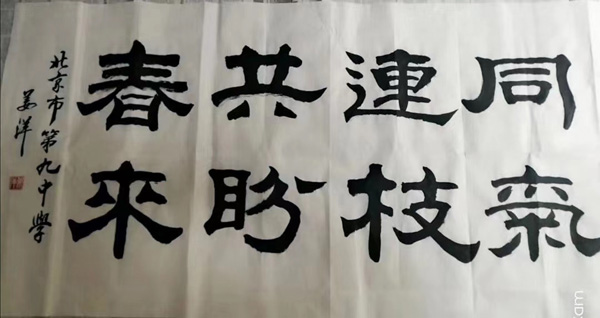 同氣
連枝
共盼
春來
北京市第九中學
姜洋
am